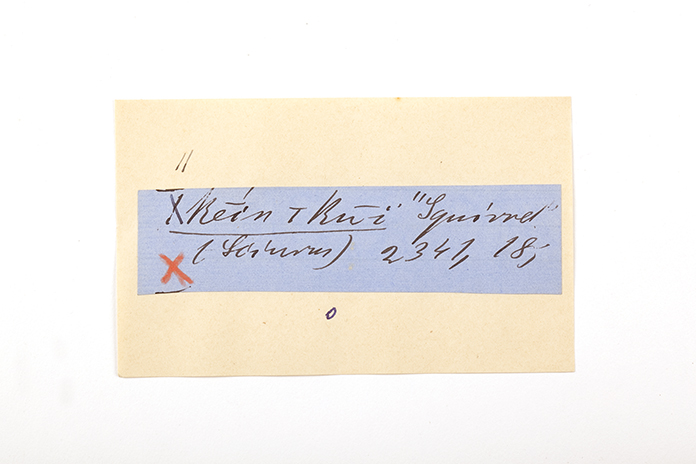 "
Kein T Kwi "Squirrel"
(Sciurus) 2341, 18;
o